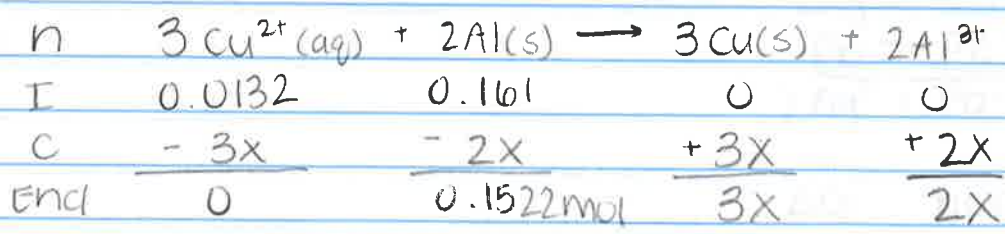 n 3 Cu²⁺ (aq) + 2Al(s) ⟶ 3 Cu(s) + 2Al³⁺
I 0.0132 0.161 0 0
C - 3x - 2x + 3x + 2x
End 0 0.1522mol 3x 2x